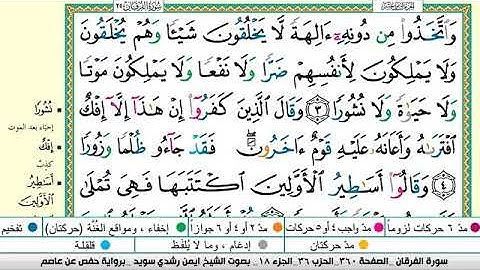 سُورَةُ الْفُرْقَانِ ٢٥
وَاتَّخَذُوا مِن دُونِهِۦٓ ءَالِهَةً لَّا يَخْلُقُونَ شَيْـًٔا وَهُمْ يُخْلَقُونَ
وَلَا يَمْلِكُونَ لِأَنفُسِهِمْ ضَرًّا وَلَا نَفْعًا وَلَا يَمْلِكُونَ مَوْتًا
وَلَا حَيَوٰةً وَلَا نُشُورًا ٣ وَقَالَ الَّذِينَ كَفَرُوٓا إِنْ هَـٰذَآ إِلَّآ إِفْكٌ
افْتَرَىٰهُ وَأَعَانَهُۥ عَلَيْهِ قَوْمٌ ءَاخَرُونَ فَقَدْ جَآءُو ظُلْمًا وَزُورًا
٤ وَقَالُوٓا أَسَـٰطِيرُ الْأَوَّلِينَ اكْتَتَبَهَا فَهِىَ تُمْلَىٰ
نُشُورًا
إحياء بعد الموت
إِفْكٌ
كذب
أَسَاطِيرُ
الْأَوَّلِينَ
مدّ ٦ حركات لزوماً
مدّ ٢ أو ٤ أو ٦ جوازاً
إخفاء، ومواقع الغُنَّة (حركتان)
تفخيم
مدّ واجب ٤ أو ٥ حركات
مدّ حركتان
إدغام، وما لا يُلفَظ
قلقلة
سورة الفرقان .. الصفحة ٣٦٠ .. الحزب ٣٦ .. الجزء ١٨ .. بصوت الشيخ ايمن رشدي سويد .. برواية حفص عن عاصم